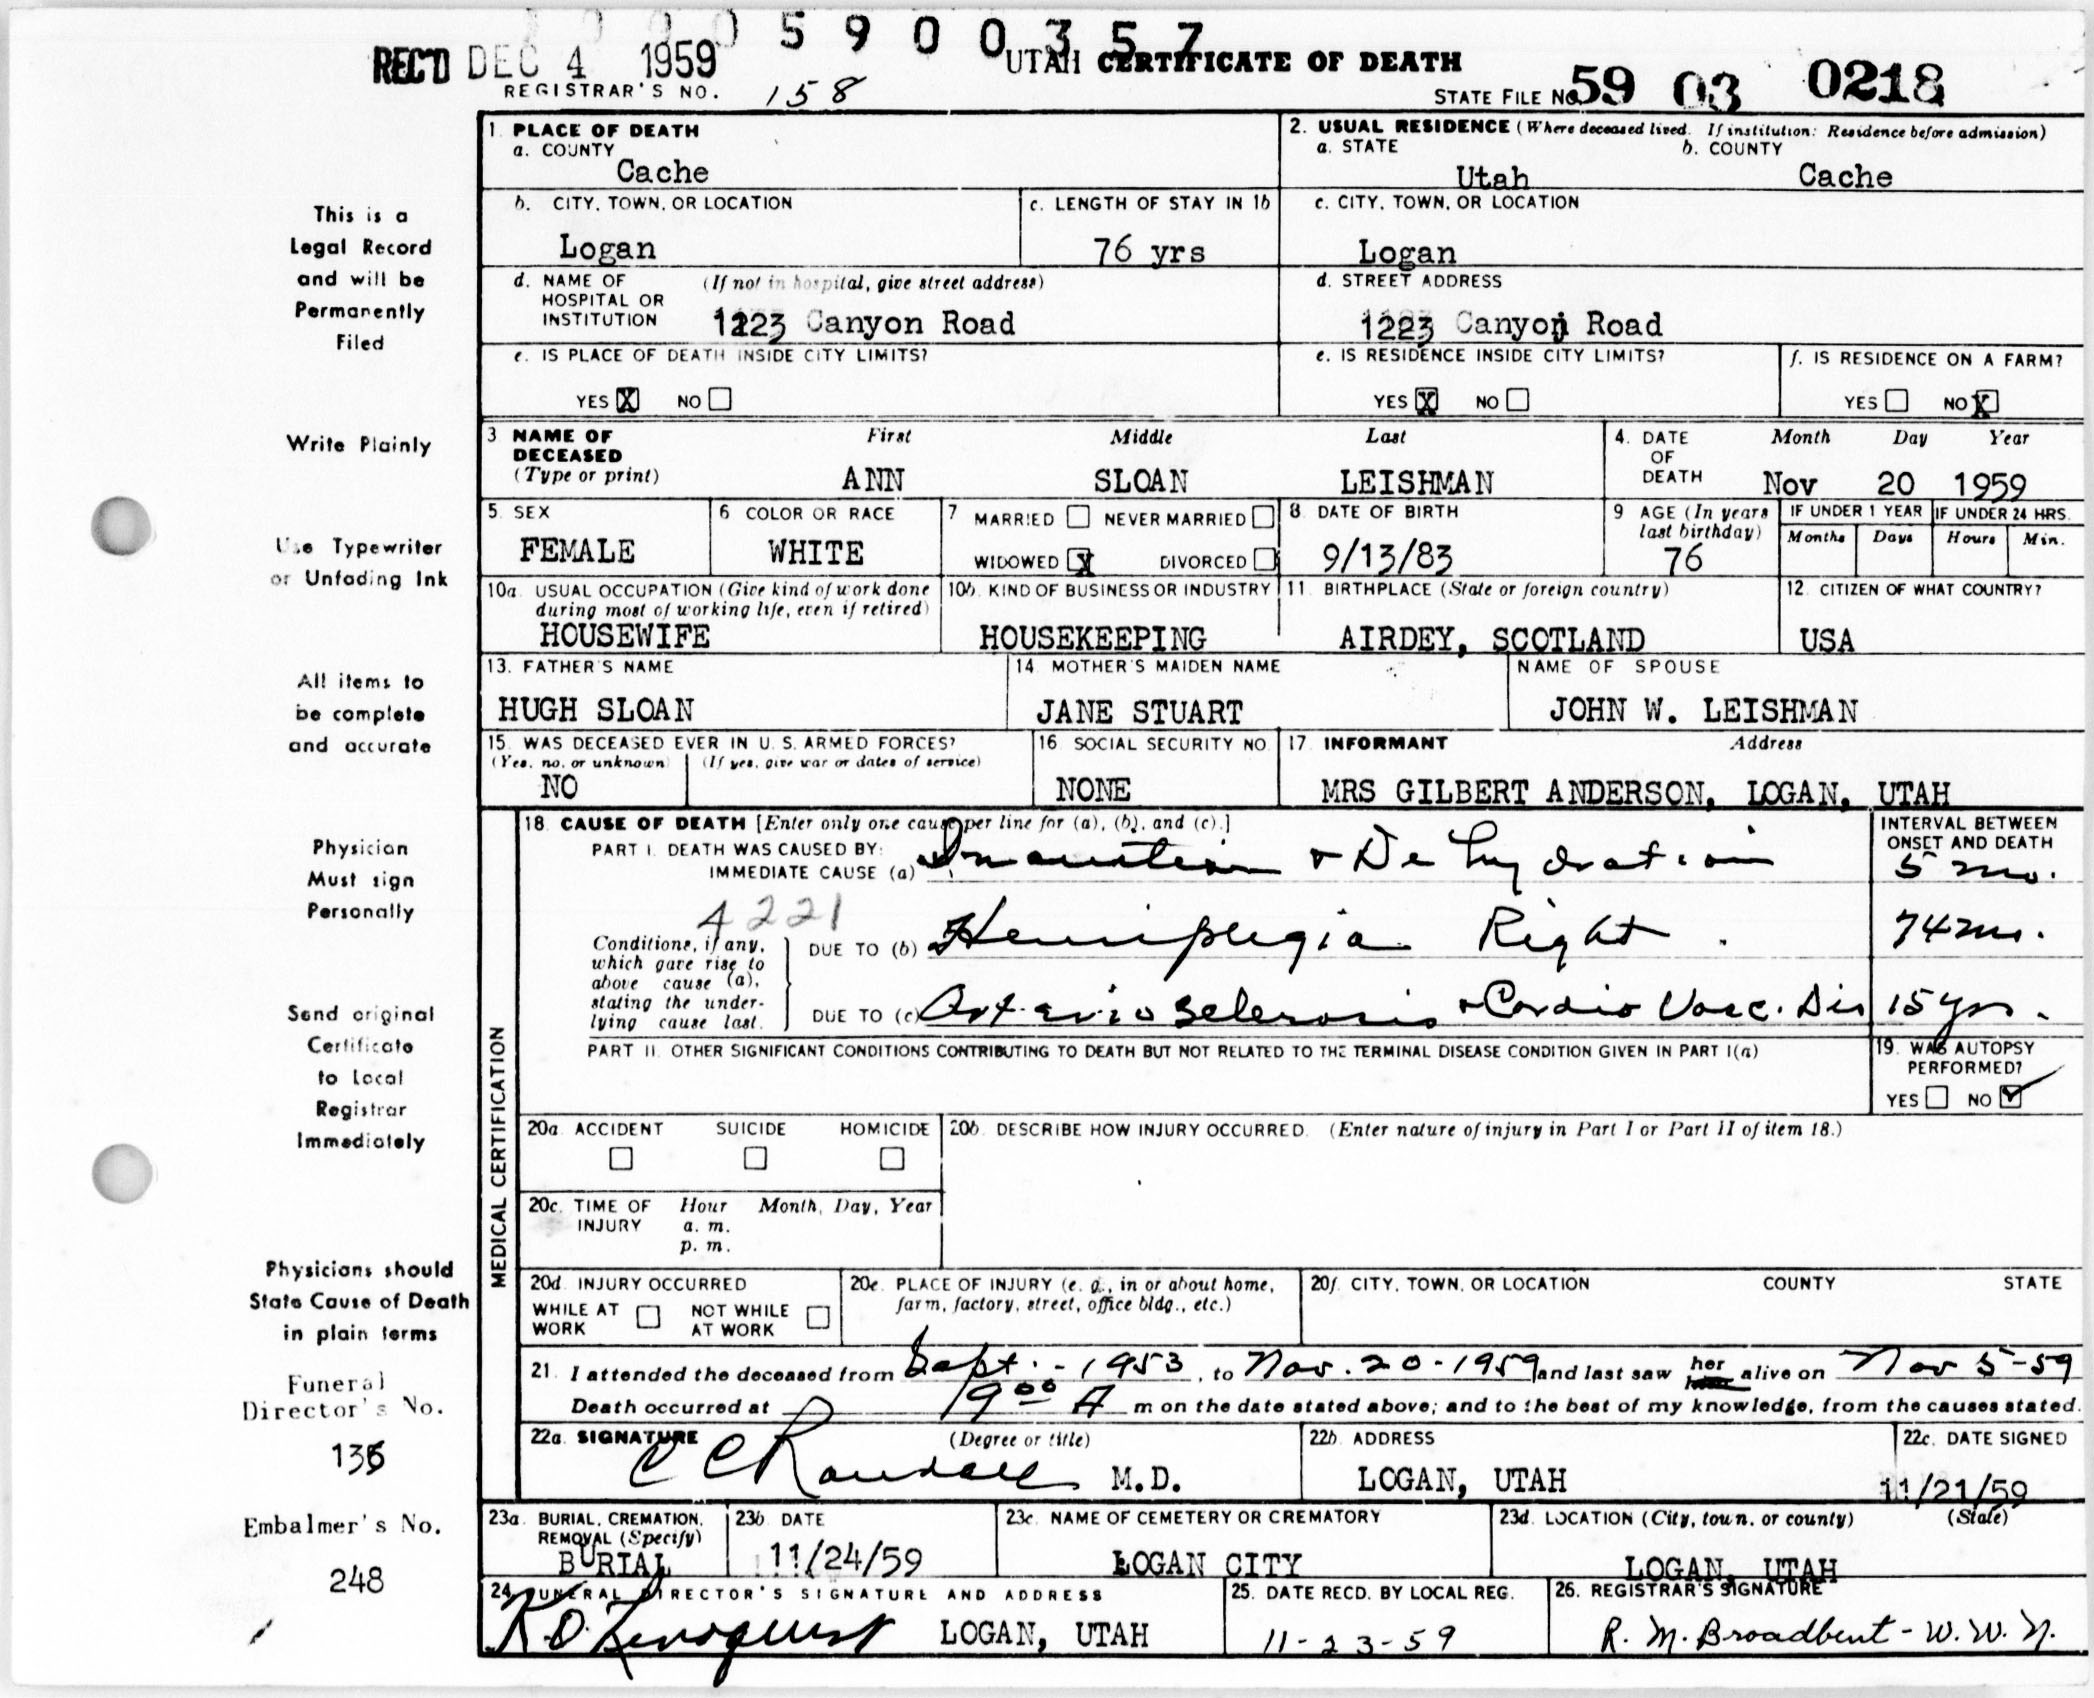 5900357
REC'D DEC 4 1959
UTAH CERTIFICATE OF DEATH
REGISTRAR'S NO. 158
STATE FILE NO. 59 03 0218
This is a
Legal Record
and will be
Permanently
Filed
Write Plainly
Use Typewriter
or Unfading Ink
All items to
be complete
and accurate
Physician
Must sign
Personally
Send original
Certificate
to Local
Registrar
Immediately
Physicians should
State Cause of Death
in plain terms
Funeral
Director's No.
136
Embalmer's No.
248
1. PLACE OF DEATH
a. COUNTY
Cache
2. USUAL RESIDENCE (Where deceased lived. If institution: Residence before admission)
a. STATE b. COUNTY
Utah Cache
b. CITY, TOWN, OR LOCATION
Logan
c. LENGTH OF STAY IN 1b
76 yrs
c. CITY, TOWN, OR LOCATION
Logan
d. NAME OF (If not in hospital, give street address)
HOSPITAL OR
INSTITUTION 1223 Canyon Road
d. STREET ADDRESS
1223 Canyon Road
e. IS PLACE OF DEATH INSIDE CITY LIMITS?
YES X NO
e. IS RESIDENCE INSIDE CITY LIMITS?
YES X NO
f. IS RESIDENCE ON A FARM?
YES NO X
3. NAME OF DECEASED First Middle Last
(Type or print) ANN SLOAN LEISHMAN
4. DATE OF DEATH Month Day Year
Nov 20 1959
5. SEX
FEMALE
6 COLOR OR RACE
WHITE
7 MARRIED NEVER MARRIED
WIDOWED X DIVORCED
8. DATE OF BIRTH
9/13/83
9 AGE (In years last birthday)
76
IF UNDER 1 YEAR IF UNDER 24 HRS.
Months Days Hours Min.
10a. USUAL OCCUPATION (Give kind of work done
during most of working life, even if retired)
HOUSEWIFE
10b. KIND OF BUSINESS OR INDUSTRY
HOUSEKEEPING
11. BIRTHPLACE (State or foreign country)
AIRDEY, SCOTLAND
12. CITIZEN OF WHAT COUNTRY?
USA
13. FATHER'S NAME
HUGH SLOAN
14. MOTHER'S MAIDEN NAME
JANE STUART
NAME OF SPOUSE
JOHN W. LEISHMAN
15. WAS DECEASED EVER IN U. S. ARMED FORCES?
(Yes, no, or unknown) (If yes, give war or dates of service)
NO
16. SOCIAL SECURITY NO.
NONE
17. INFORMANT Address
MRS GILBERT ANDERSON, LOGAN, UTAH
MEDICAL CERTIFICATION
18. CAUSE OF DEATH [Enter only one cause per line for (a), (b), and (c).]
INTERVAL BETWEEN
ONSET AND DEATH
PART I. DEATH WAS CAUSED BY:
IMMEDIATE CAUSE (a) Inanition + Dehydration 5 mo.
4221
Conditions, if any,
which gave rise to
above cause (a),
stating the under-
lying cause last.
DUE TO (b) Hemiplegia Right. 74 mo.
DUE TO (c) Arteriosclerosis + Cardio Vasc. Dis 15 yrs.
PART II. OTHER SIGNIFICANT CONDITIONS CONTRIBUTING TO DEATH BUT NOT RELATED TO THE TERMINAL DISEASE CONDITION GIVEN IN PART I(a)
19. WAS AUTOPSY
PERFORMED?
YES NO ✓
20a. ACCIDENT SUICIDE HOMICIDE
20b. DESCRIBE HOW INJURY OCCURRED. (Enter nature of injury in Part I or Part II of item 18.)
20c. TIME OF INJURY Hour Month, Day, Year
a. m.
p. m.
20d. INJURY OCCURRED
WHILE AT WORK NOT WHILE AT WORK
20e. PLACE OF INJURY (e. g., in or about home,
farm, factory, street, office bldg., etc.)
20f. CITY, TOWN, OR LOCATION COUNTY STATE
21. I attended the deceased from Sept. - 1953, to Nov. 20 - 1959 and last saw her alive on Nov 5-59
Death occurred at 9 00 A m on the date stated above; and to the best of my knowledge, from the causes stated.
22a. SIGNATURE (Degree or title)
C C Randall M.D.
22b. ADDRESS
LOGAN, UTAH
22c. DATE SIGNED
11/21/59
23a. BURIAL, CREMATION,
REMOVAL (Specify)
BURIAL
23b. DATE
11/24/59
23c. NAME OF CEMETERY OR CREMATORY
LOGAN CITY
23d. LOCATION (City, town, or county) (State)
LOGAN, UTAH
24. FUNERAL DIRECTOR'S SIGNATURE AND ADDRESS
K O Lindquist LOGAN, UTAH
25. DATE RECD. BY LOCAL REG.
11-23-59
26. REGISTRAR'S SIGNATURE
R. M. Broadbent - W. W. N.